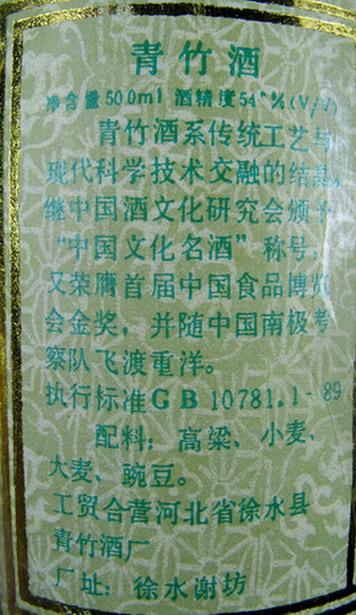 青竹酒
净含量500ml 酒精度54°%(V/V)
青竹酒系传统工艺与
现代科学技术交融的结晶,
继中国酒文化研究会颁予
“中国文化名酒”称号,
又荣膺首届中国食品博览
会金奖,并随中国南极考
察队飞渡重洋。
执行标准GB 10781.1-89
配料:高粱、小麦、
大麦、豌豆。
工贸合营河北省徐水县
青竹酒厂
厂址:徐水谢坊